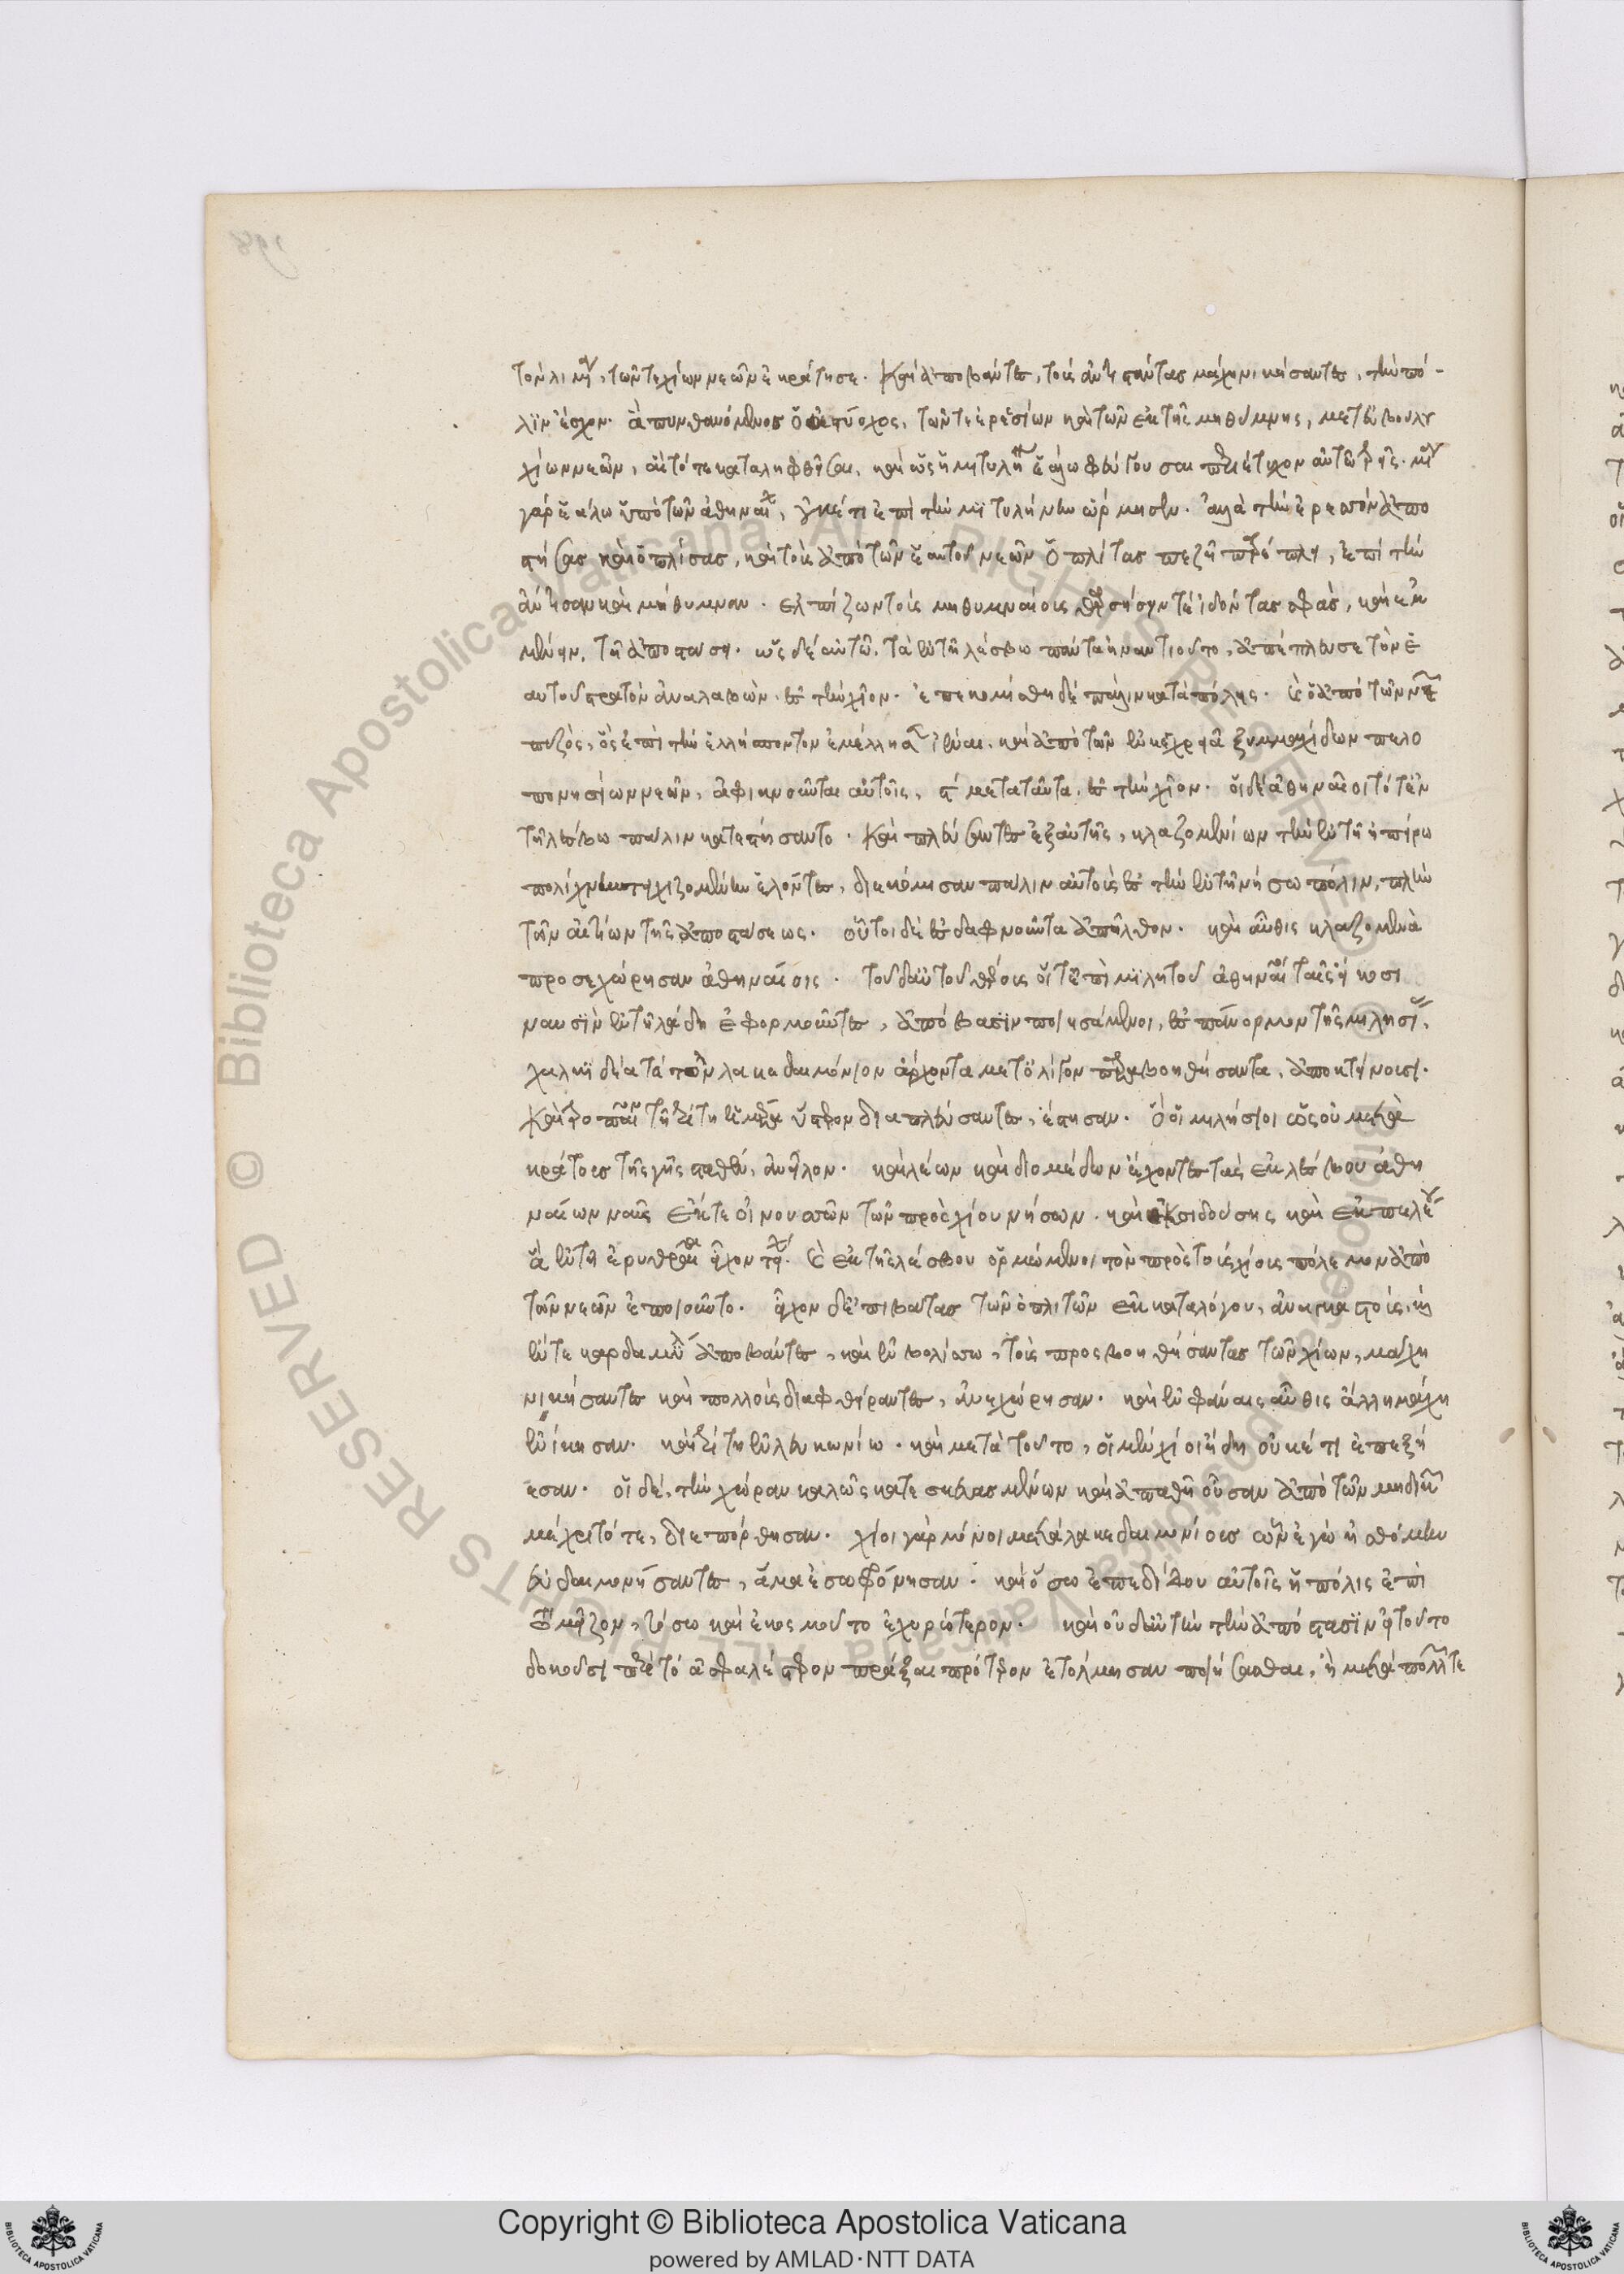 τὸν λιμένα, τῶν τε χίων νεῶν ἐκράτησε. καὶ ἀποβάντες, τοὺς ἀντιστάντας μάχη νικήσαντες, τὴν πό-
λιν ἔσχον. ἃ πυνθανόμενος ὁ ἀστύοχος, τῶν τε ἐρεσίων καὶ τῶν ἐκ τῆς μηθύμνης, μετ εὐβούλου
χίων νεῶν, αἳ τότε καταληφθεῖσαι, καὶ ὡς ἡ μιτυλήνη ἑάλω φεύγουσαι περιέτυχον αὐτῶ τρεῖς. μία
γὰρ ἑάλω ὑπὸ τῶν ἀθηναίων, οὐκέτι ἐπὶ τὴν μιτυλήνην ὥρμησεν. ἀλλὰ τὴν ἐρεσὸν ἀπο
στήσας καὶ ὁπλίσας, καὶ τοὺς ἀπὸ τῶν ἑαυτοῦ νεῶν ὁπλίτας πεζῆ, ἐπὶ τὴν
ἄντισσαν καὶ μήθυμναν. ἐλπίζων τοὺς μηθυμναίους θαρσήσειν τε ἰδόντας σφᾶς, καὶ ἐμ
μενεῖν, τῆ ἀποστάσει. ὡς δὲ αὐτῶ, τὰ ἐν τῆ λέσβω πάντα ἠναντιοῦτο, ἀπέπλευσε τὸν ἑ
αυτοῦ στρατὸν ἀναλαβὼν ἐς τὴν χίον. ἐπεκομίσθη δὲ πάλιν κατὰ πόλεις. καὶ ὁ ἀπὸ τῶν νεῶν
πεζὸς, ὃς ἐπὶ τὴν ἑλλήσποντον ἐμέλλησεν ἰέναι. καὶ ἀπὸ τῶν ἐν κεγχρειᾶ ξυμμαχίδων πελο
πονησίων νεῶν, ἀφικνοῦνται αὐτοῖς, ϛ μετὰ ταῦτα, ἐς τὴν χίον. οἱ δὲ ἀθηναῖοι τό τ ἐν
τῆ λέσβω πάλιν κατεστήσαντο. καὶ πλεύσαντες ἐξ αὐτῆς, κλαζομενίων τὴν ἐν τῆ ἠπείρω
πολίχνην τειχιζομένην ἑλόντες, διεκόμισαν πάλιν αὐτοὺς ἐς τὴν ἐν τῆ νήσω πόλιν, πλὴν
τῶν αἰτίων τῆς ἀποστάσεως. οὗτοι δὲ ἐς δαφνοῦντα ἀπῆλθον. καὶ αὖθις κλαζομεναὶ
προσεχώρησαν ἀθηναίοις. τοῦ δ αὐτοῦ θέρους οἵ τ ἐπὶ μιλήτου ἀθηναῖοι ταῖς εἴκοσι
ναυσὶν ἐν τῆ λάδη ἐφορμοῦντες, ἀπόβασιν ποιησάμενοι, ἐς πάνορμον τῆς μιλησίας,
χαλκιδέα τὰ τὸν λακεδαιμόνιον ἄρχοντα μετ ὀλίγον παραβοηθήσαντα, ἀποκτείνουσι.
καὶ τροπαῖον τῆ τρίτη ἡμέρα ὕστερον διαπλεύσαντες, ἔστησαν. ὃ οἱ μιλήσιοι ὡς οὐ μετὰ
κράτους τῆς γῆς σταθὲν, ἀνεῖλον. καὶ λέων καὶ διομέδων ἔχοντες τὰς ἐκ λέσβου ἀθη
ναίων ναῦς ἔκ τε οἰνουσῶν τῶν πρὸ χίου νήσων. καὶ ἐκ σιδούσης καὶ ἐκ πτελεοῦ
ἃ ἐν τῆ ἐρυθραία εἶχον τείχη. καὶ ἐκ τῆς λέσβου ὁρμώμενοι τὸν πρὸς τοὺς χίους πόλεμον ἀπὸ
τῶν νεῶν ἐποιοῦντο. εἶχον δ ἐπιβάτας τῶν ὁπλιτῶν ἐκ καταλόγου, ἀναγκαστούς. καὶ
ἔν τε καρδαμύλη ἀποβάντες, καὶ ἐν βολίσσω, τοὺς προσβοηθήσαντας τῶν χίων, μάχη
νικήσαντες καὶ πολλοὺς διαφθείραντες, ἀνεχώρησαν. καὶ ἐν φάναις αὖθις ἄλλη μάχη
ἐνίκησαν. καὶ τρίτη ἐν λευκωνίω. καὶ μετὰ τοῦτο, οἱ μὲν χίοι ἤδη οὐκέτι ἐπεξή
εσαν. οἱ δὲ, τὴν χώραν καλῶς κατεσκευασμένων καὶ ἀπαθῆ οὖσαν ἀπὸ τῶν μηδικῶν
μέχρι τότε, διεπόρθησαν. χίοι γὰρ μόνοι μετὰ λακεδαιμονίους ὧν ἐγὼ ἠσθόμην
εὐδαιμονήσαντες, ἅμα ἐσωφρόνησαν. καὶ ὅσω ἐπεδίδου αὐτοῖς ἡ πόλις ἐπὶ
τὸ μεῖζον, τόσω καὶ ἐκοσμοῦντο ἐχυρώτερον. καὶ οὐδ αὐτὴν τὴν ἀπόστασιν εἰ τοῦτο
δοκοῦσι παρὰ τὸ ἀσφαλέστερον πρᾶξαι πρότερον ἐτόλμησαν ποιήσασθαι, ἢ μετὰ πολλῶν τε